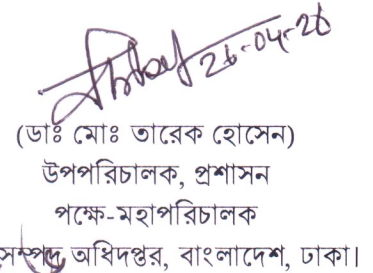 26-04-26
(ডাঃ মোঃ তারেক হোসেন)
উপপরিচালক, প্রশাসন
পক্ষে-মহাপরিচালক
অধিদপ্তর, বাংলাদেশ, ঢাকা।